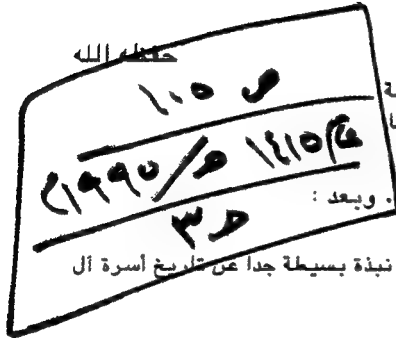 حفظه الله
ص ١٠٥
عام ١٤١٥ هـ / ١٩٩٥م
ط ٣
. وبعد :
نبذة بسيطة جداً عن تاريخ أسرة آل